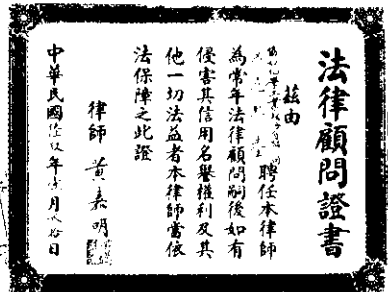 法律顧問證書
茲由
聘任本律師
為常年法律顧問嗣後如有
侵害其信用名譽權利及其
他一切法益者本律師當依
法保障之此證
律師 黃嘉明
中華民國 年 月 拾 日